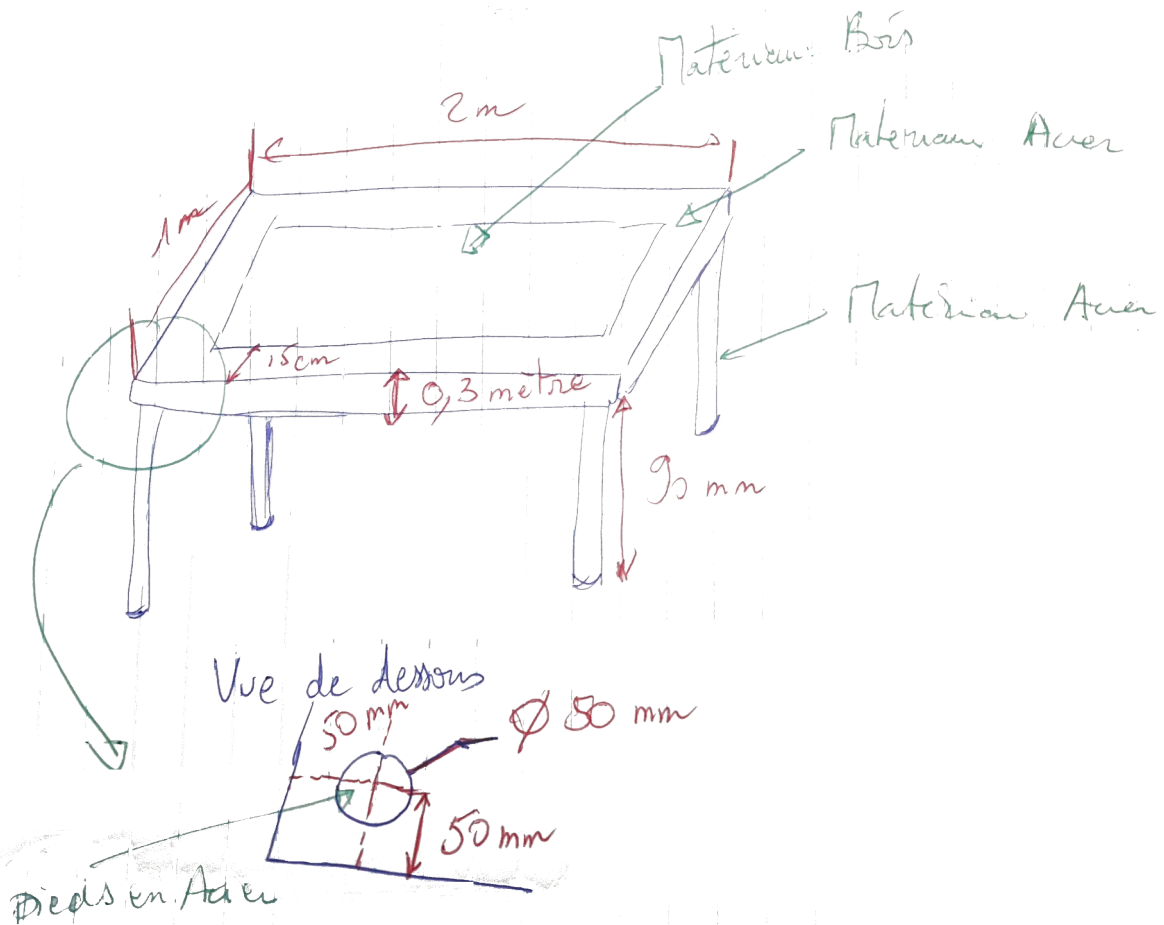 Materiau: Bois
2 m
Materiau Acier
1 m
Materiau Acier
15cm
0,3 metre
90 mm
Vue de dessous
50 mm
Ø 50 mm
50 mm
Pieds en Acier